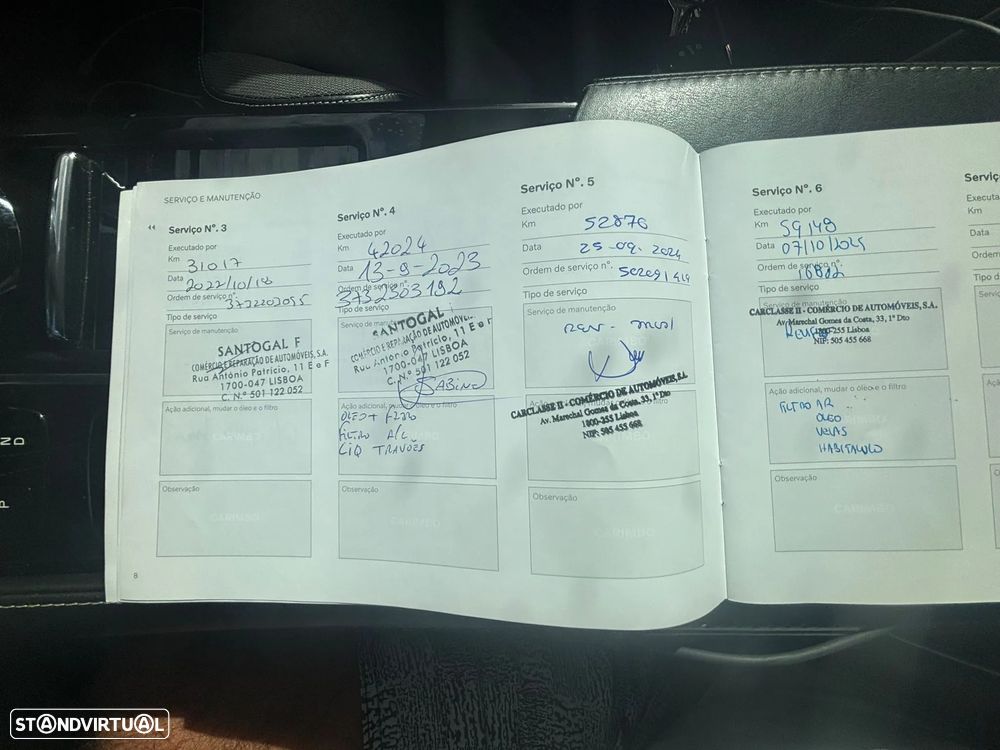 SERVIÇO E MANUTENÇÃO
Serviço Nº. 3
Executado por
Km
31017
Data
2022/10/18
Ordem de serviço nº.
Tipo de serviço
Serviço de manutenção
SANTOGAL F
COMÉRCIO E REPARAÇÃO DE AUTOMÓVEIS, S.A.
Rua António Patrício, 11 E e F
1700-047 LISBOA
C. N.º 501 122 052
Ação adicional, mudar o óleo e o filtro
CARIMBO
Observação
CARIMBO
8
Serviço Nº. 4
Executado por
Km
42024
Data
13-9-2023
Ordem de serviço nº.
3732303192
Tipo de serviço
Serviço de
SANTOGAL
COMÉRCIO E REPARAÇÃO DE AUTOMÓVEIS,
Rua António Patrício, 11 E e F
1700-047 LISBOA
C. N.º 501 122 052
SABINO
Ação adicional, mudar o óleo e o filtro
ÓLEO + FILTRO
FILTRO A/C
LIQ TRAVÕES
Observação
CARIMBO
Serviço Nº. 5
Executado por
Km
52876
Data
25-09-2024
Ordem de serviço nº.
Tipo de serviço
Serviço de manutenção
CARCLASSE II - COMÉRCIO DE AUTOMÓVEIS, S.A.
Av. Marechal Gomes da Costa, 33, 1º Dto
1800-255 Lisboa
NIF: 505 455 668
Observação
CARIMBO
Serviço Nº. 6
Executado por
Km
59149
Data
07/10/2025
Ordem de serviço nº.
Tipo de serviço
Serviço de manutenção
CARCLASSE II - COMÉRCIO DE AUTOMÓVEIS, S.A.
Av. Marechal Gomes da Costa, 33, 1º Dto
1800-255 Lisboa
NIF: 505 455 668
Ação adicional, mudar o óleo e o filtro
FILTRO AR
OLEO
VELAS
HABITACULO
Observação
CARIMBO
Km
Data
STANDVIRTUAL